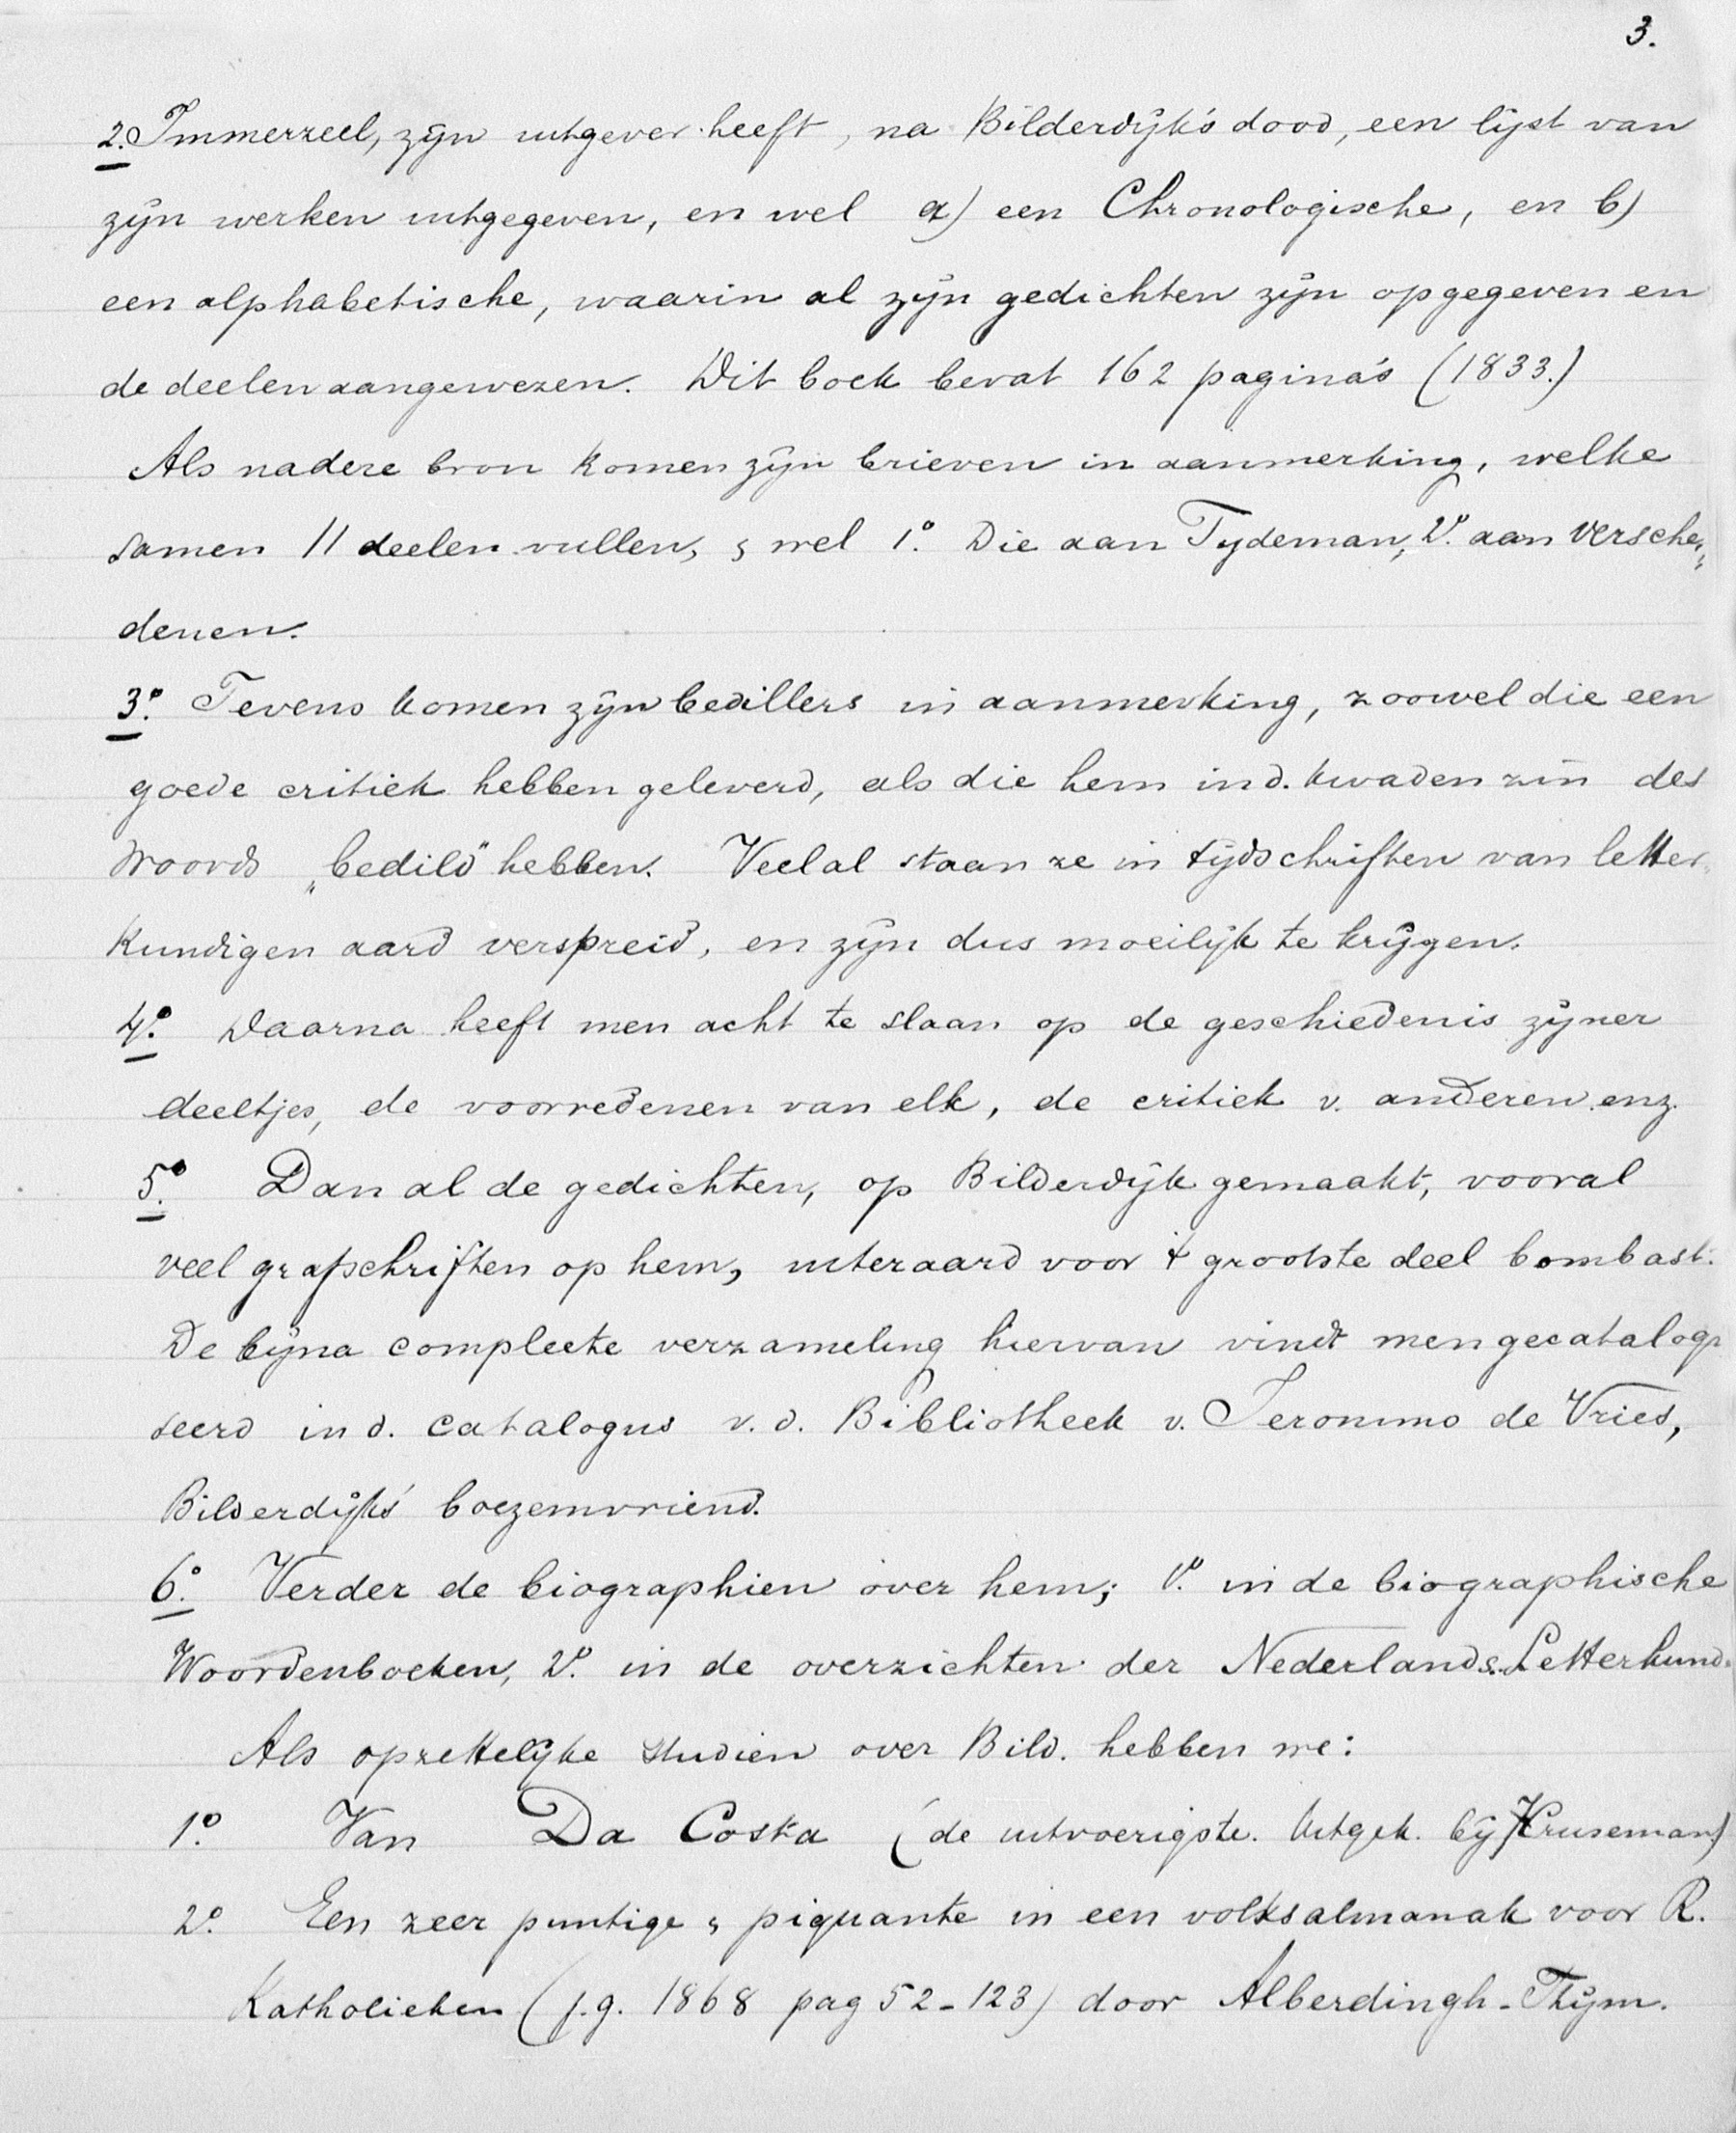 3.
2. Immerzeel, zijn uitgever heeft, na Bilderdijk's dood, een lijst van
zijn werken uitgegeven, en wel a) een Chronologische, en b)
een alphabetische, waarin al zijn gedichten zijn opgegeven en
de deelen aangewezen. Dit boek bevat 162 pagina's (1833.)
Als nadere bron komen zijn brieven in aanmerking, welke
samen 11 deelen vullen, & wel 1º. Die aan Tydeman, 2º. aan versche„
denen.
3º. Tevens komen zijn bedillers in aanmerking, zoowel die een
goede critiek hebben geleverd, als die hem in d. kwaden zin des
Woords „bedild" hebben. Veelal staan ze in tijdschriften van letter„
kundigen aard verspreid, en zijn dus moeilijk te krijgen.
4º. Daarna heeft men acht te slaan op de geschiedenis zijner
deeltjes, de voorredenen van elk, de critiek v. anderen enz.
5º. Dan al de gedichten, op Bilderdijk gemaakt, vooral
veel grafschriften op hem, uiteraard voor 't grootste deel bombast.
De bijna compleete verzameling hiervan vindt men gecatalogi
seerd in d. catalogus v. d. Bibliotheek v. Jeronimo de Vries,
Bilderdijks' boezemvriend.
6º. Verder de biographien over hem; 1º. in de biographische
Woordenboeken, 2º. in de overzichten der Nederlands. Letterkund.
Als opzettelijke studien over Bild. hebben we:
1º. Van Da Costa (de uitvoerigste. Uitgek. bij Kruseman)
2º. Een zeer puntige & piquante in een volksalmanak voor R.
Katholieken (j.g. 1868 pag 52-123) door Alberdingh-Thijm.